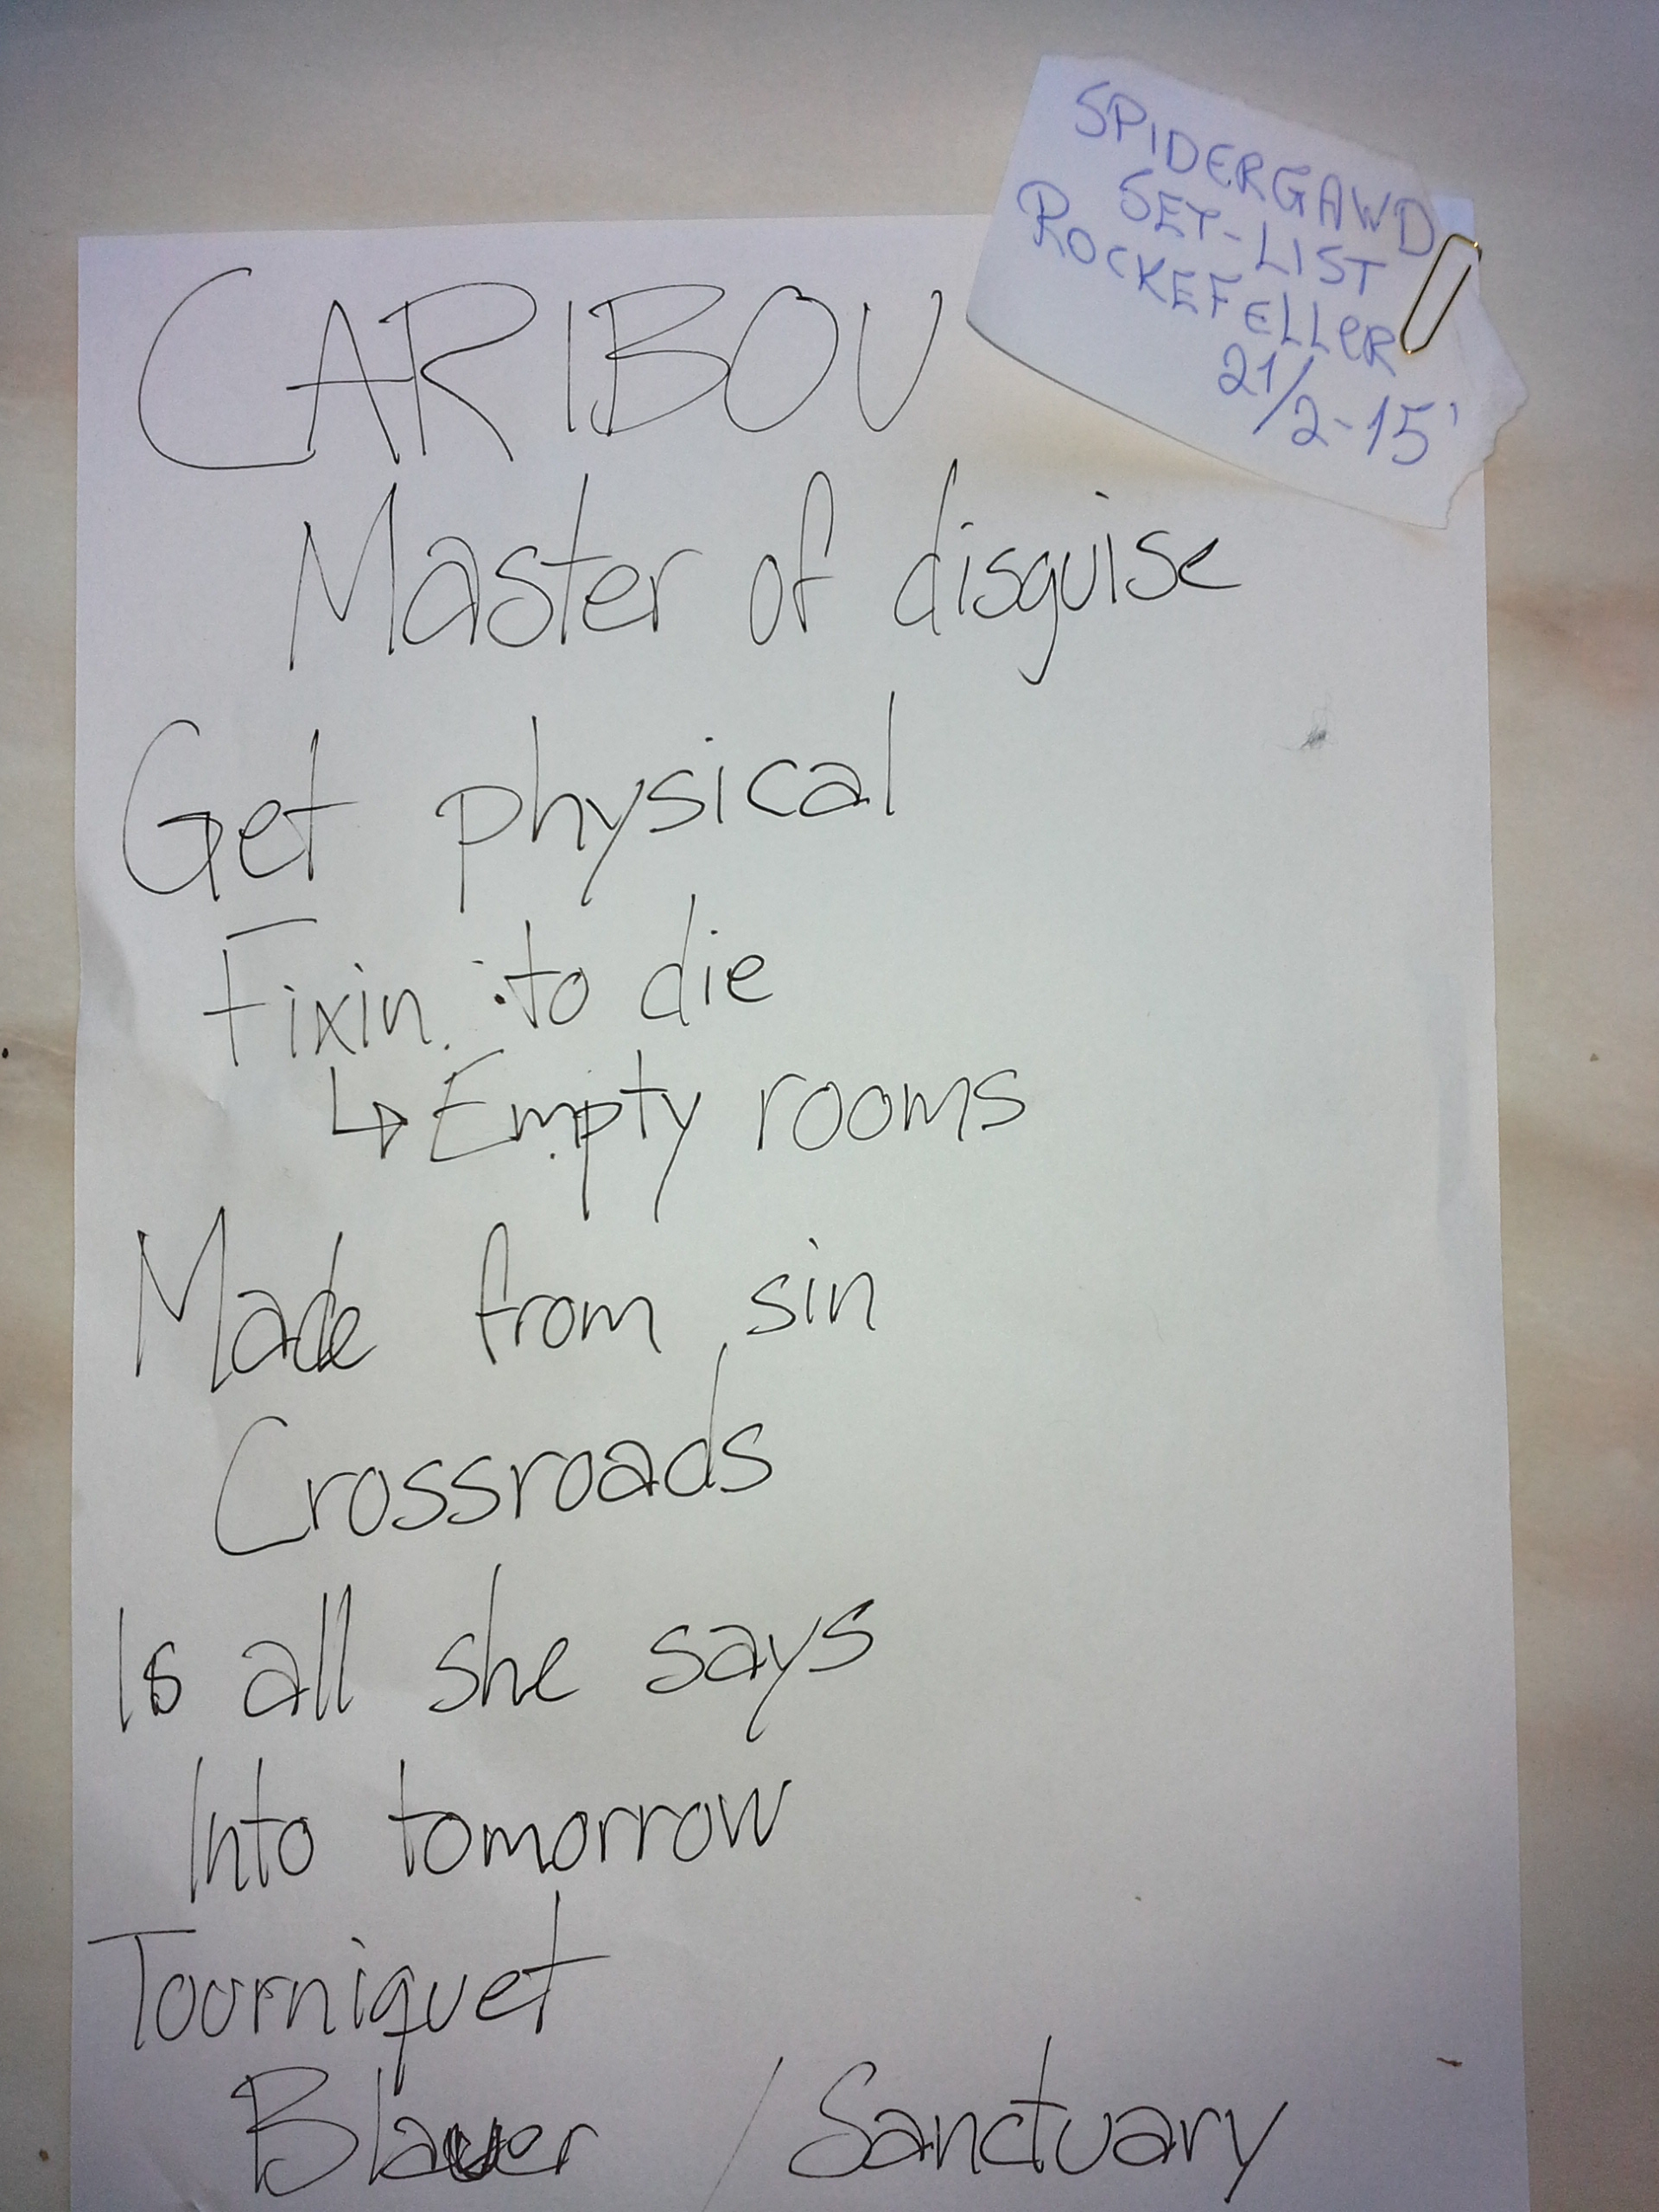 SPIDERGAWD
SET-LIST
ROCKEFELLER
21/2-15'
CARIBOU
Master of disguise
Get physical
Fixin to die
↳ Empty rooms
Made from sin
Crossroads
Is all she says
Into tomorrow
Tourniquet
Blauer / Sanctuary